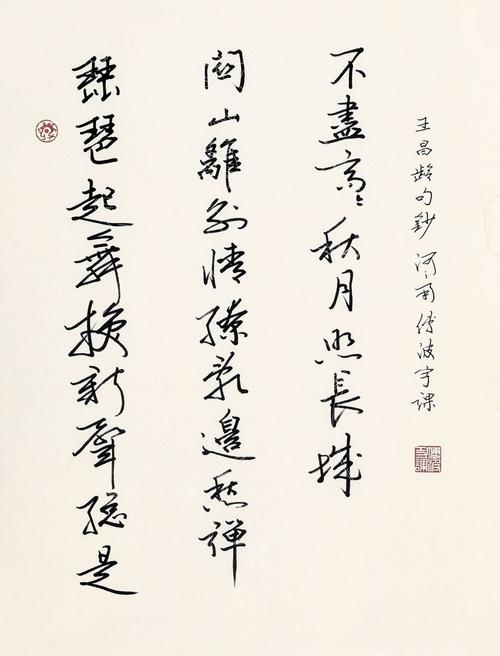 琵琶起舞換新聲總是
關山離別情繚亂邊愁彈
不盡高〻秋月照長城
王昌齡句鈔 河南傅波宇課